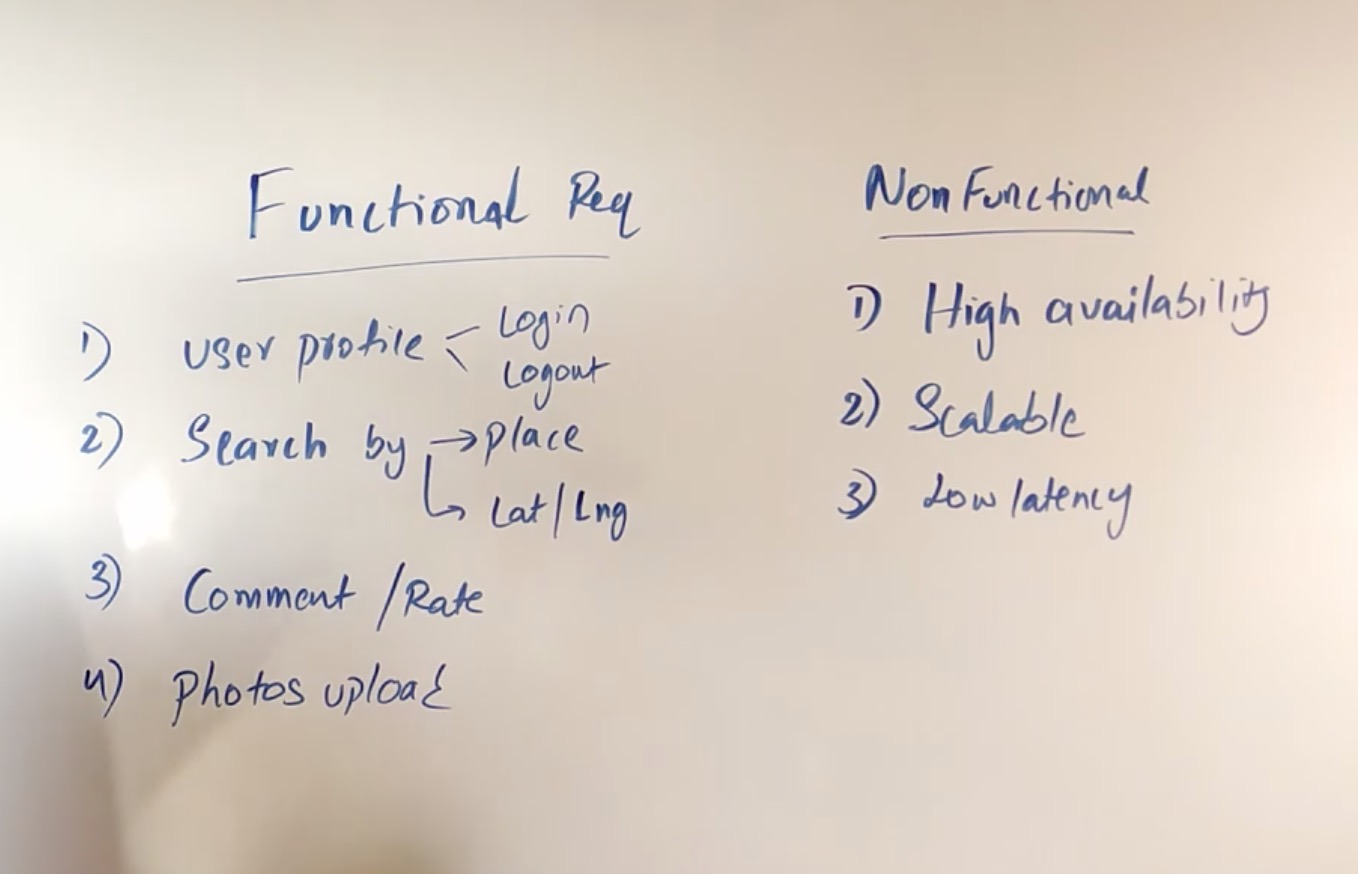 Functional Req
1) user profile - Login
Logout
2) Search by → place
↳ Lat/Lng
3) Comment / Rate
4) photos upload
Non Functional
1) High availability
2) Scalable
3) Low latency